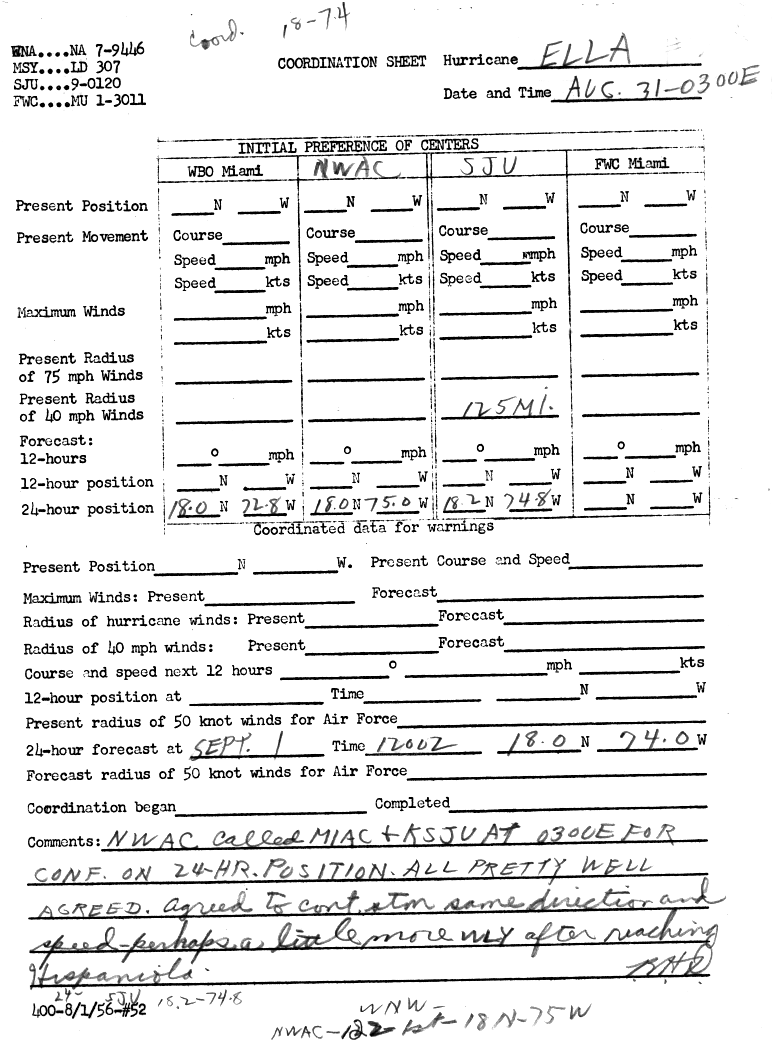 Coord. 18-74
WNA....NA 7-9446
MSY....LD 307
SJU....9-0120
FWC....MU 1-3011
COORDINATION SHEET Hurricane ELLA
Date and Time AUG. 31-0300E
INITIAL PREFERENCE OF CENTERS
WBO Miami NWAC SJU FWC Miami
Present Position ____N ____W ____N ____W ____N ____W ____N ____W
Present Movement Course____ Course____ Course____ Course____
Speed____mph Speed____mph Speed____mph Speed____mph
Speed____kts Speed____kts Speed____kts Speed____kts
Maximum Winds ____mph ____mph ____mph ____mph
____kts ____kts ____kts ____kts
Present Radius
of 75 mph Winds
Present Radius
of 40 mph Winds 125 MI.
Forecast:
12-hours ____o ____mph ____o ____mph ____o ____mph ____o ____mph
12-hour position ____N ____W ____N ____W ____N ____W ____N ____W
24-hour position 18.0 N 72.8 W 18.0 N 75.0 W 18.2 N 74.8 W ____N ____W
Coordinated data for warnings
Present Position____N ____W. Present Course and Speed____
Maximum Winds: Present____ Forecast____
Radius of hurricane winds: Present____ Forecast____
Radius of 40 mph winds: Present____ Forecast____
Course and speed next 12 hours ____o ____mph ____kts
12-hour position at ____ Time____ ____N ____W
Present radius of 50 knot winds for Air Force____
24-hour forecast at SEPT. 1 Time 1200Z 18.0 N 74.0 W
Forecast radius of 50 knot winds for Air Force____
Coordination began____ Completed____
Comments: NWAC called MIAC + KSJU AT 0300E FOR
CONF. ON 24-HR. POSITION. ALL PRETTY WELL
AGREED. Agreed to cont. stm same direction and
speed-perhaps a little more wly after reaching
Hispaniola.
24- SJU 18.2-74.8
400-8/1/56-#52
WNW-
NWAC- 18N-75W